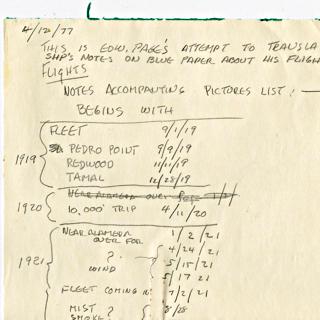 4/12/77
THIS IS EDW. PAGE'S ATTEMPT TO TRANSLA
SHP'S NOTES ON BLUE PAPER ABOUT HIS FLIGH
FLIGHTS
NOTES ACCOMPANTING PICTURES LIST: —
BEGINS WITH
1919
FLEET 9/1/19
PEDRO POINT 9/9/19
REDWOOD 11/11/19
TAMAL 12/28/19
1920
NEAR ALAMEDA OVER
10,000' TRIP 4/11/20
1921
NEAR ALAMEDA 1/2/21
OVER FOR
? 4/24/21
WIND 5/15/21
5/17 21
FLEET COMING IN 7/2/21
MIST ? 8/28
SMOKE